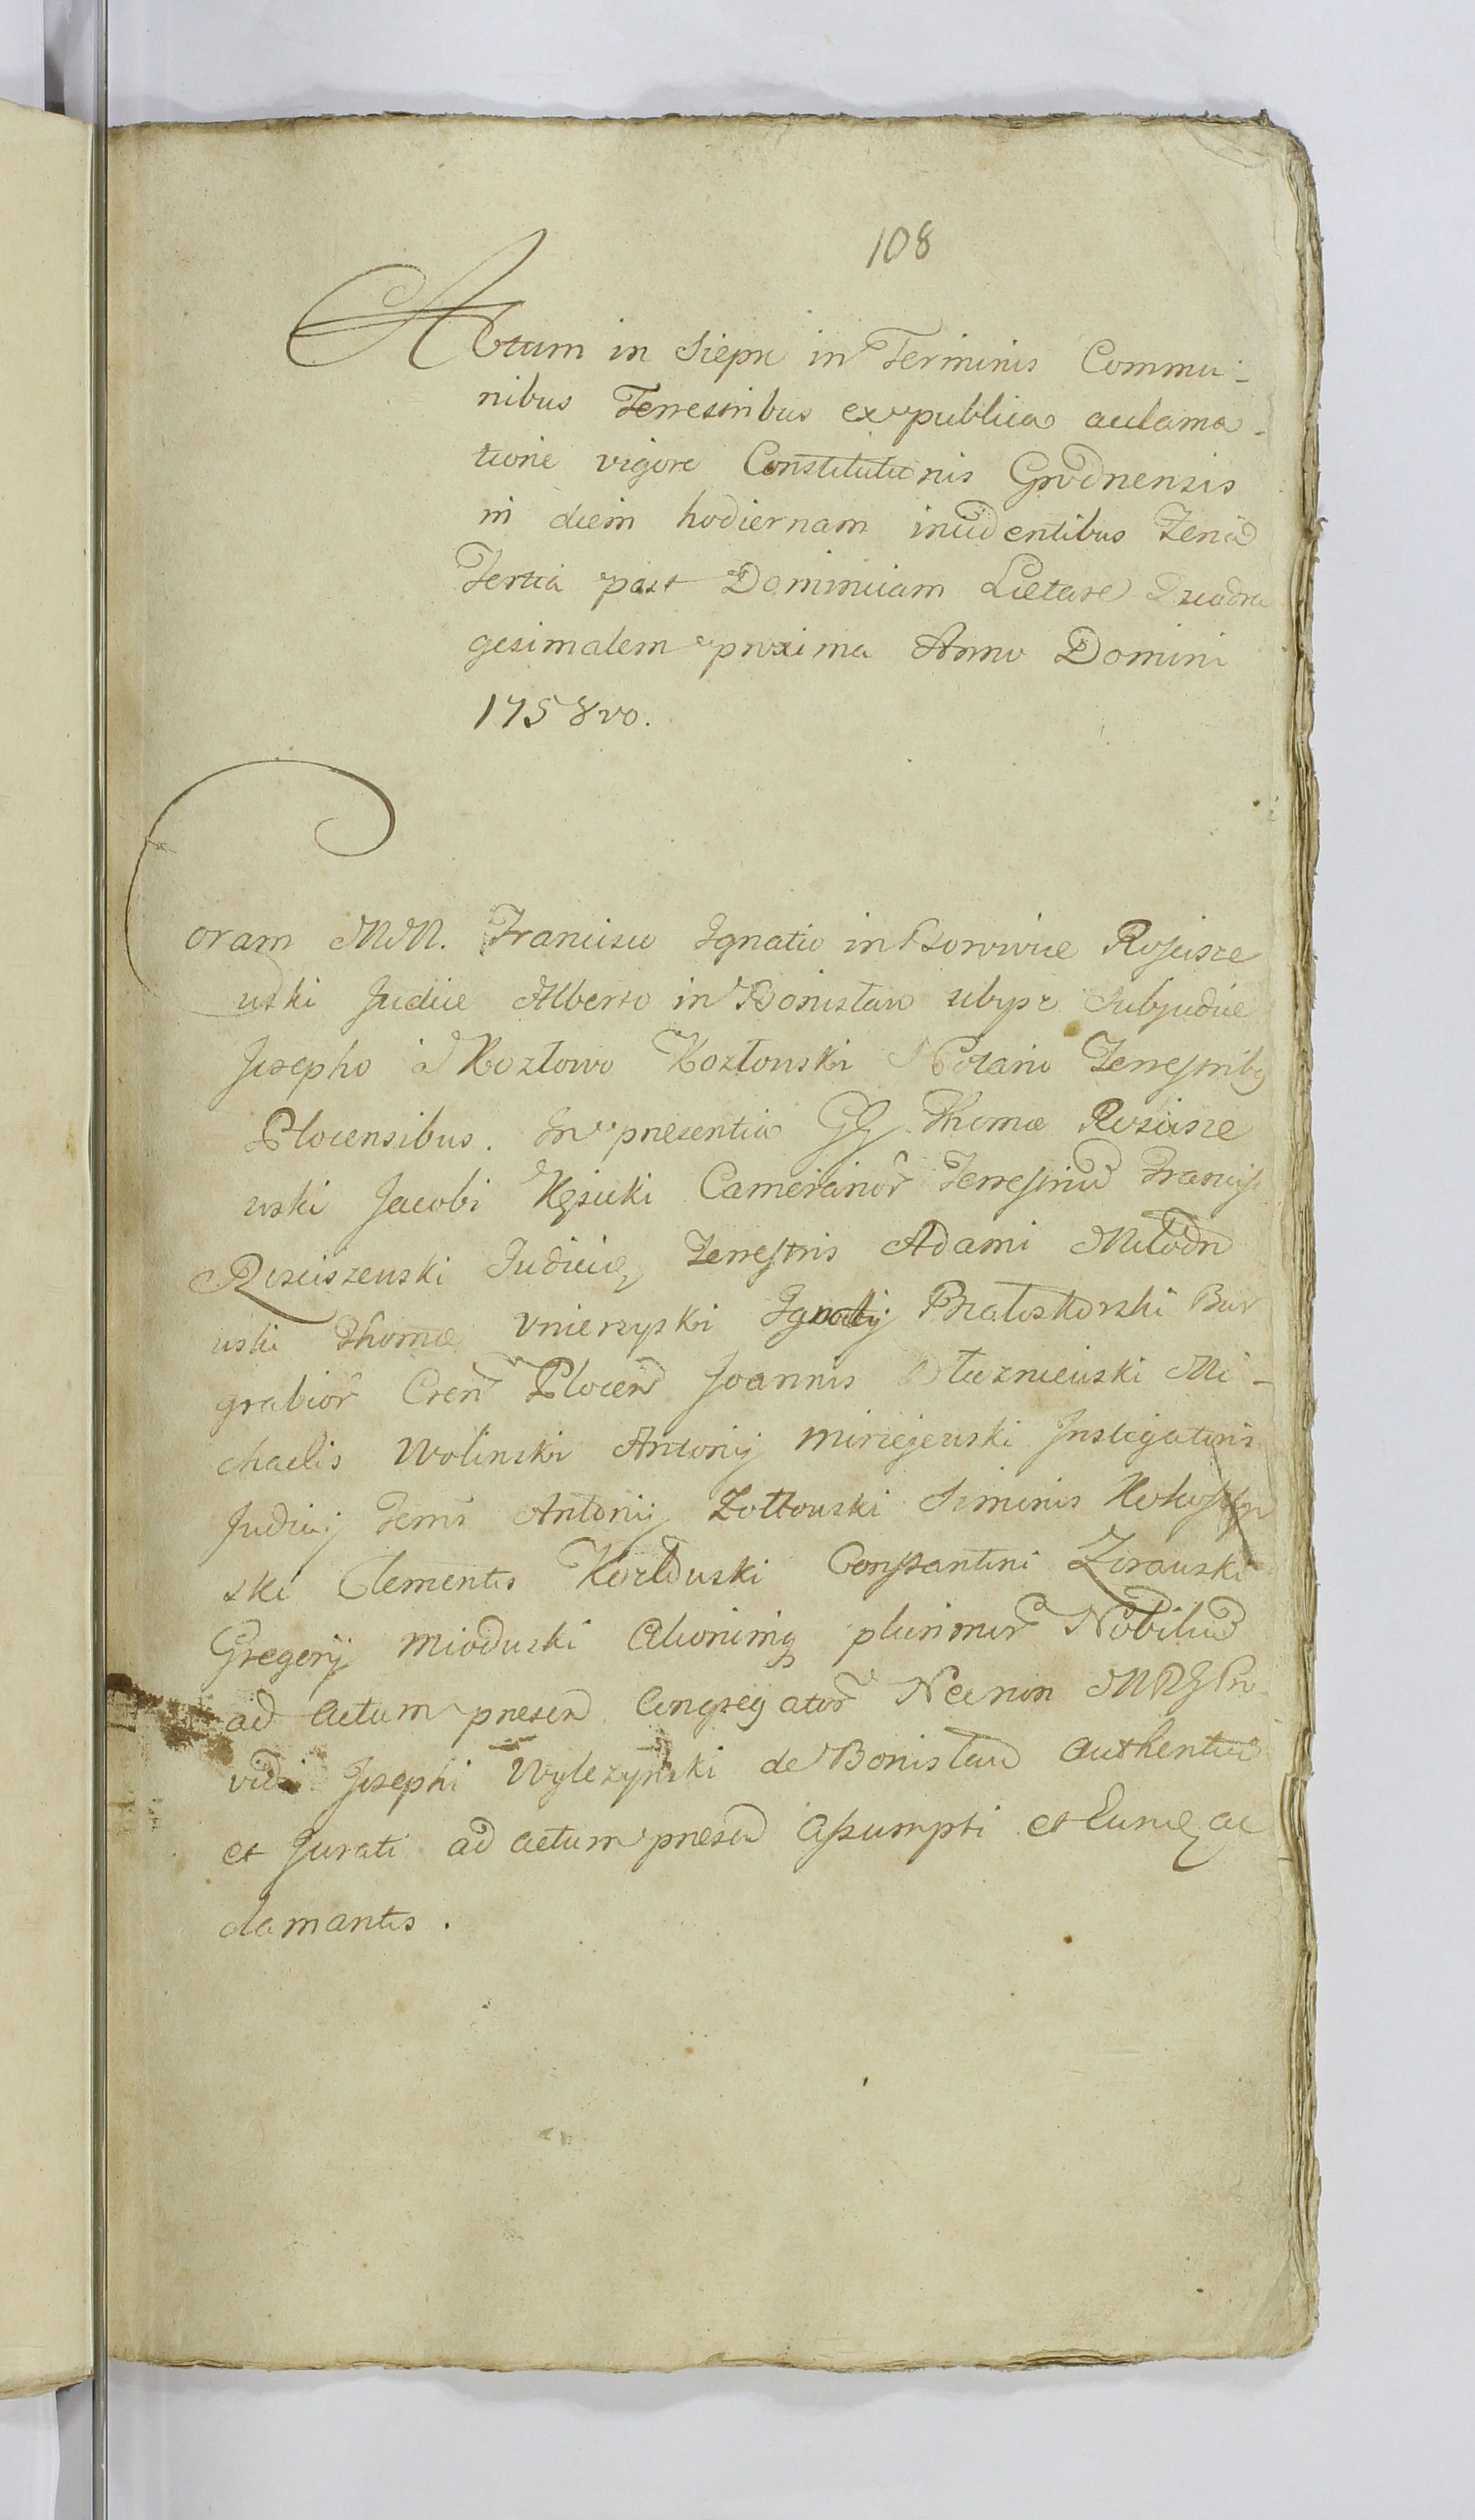 108
Actum in Siepre in Terminis Commu-
nibus Terrestribus ex publica acclama-
tione vigore Constitutionis Grodnensis
in diem hodiernam incidentibus Feria
Tertia post Dominicam Laetare Quadra
gesimalem proxima Anno Domini
1758vo.
Coram MM. Francisco Ignatio in Roscisze
wski Judice Alberto in Bonislaw Subjudice
Josepho a Kozłowo Kozłowski Notario Terrestribg
Plocensibus. In presentia GG Thomæ Roscisze
wski Jacobi Kęsicki Camerarior Terrestriu Francisci
Rosciszewski Judicii Terrestris Adami Młodzia
wski Thomæ Unierzyski Ignatij Białoskorski Bur
grabior Cren Plocen Joannis Dłuzniewski Mi-
chaelis Wolinski Antonij Mirzejewski Instigatoris
Judicij Terris Antonij Zołtowski Simonis
ski Clementis Constantini Zorawski
Gregorij Mioduski Aliorumq plurimor Nobiliu
ad Actum presen Congregator Necnon MR Pro
vidi Josephi Wylezynski de Bonislaw Authentici
et Jurati ad actum presen Assumpti et ac
clamantis.